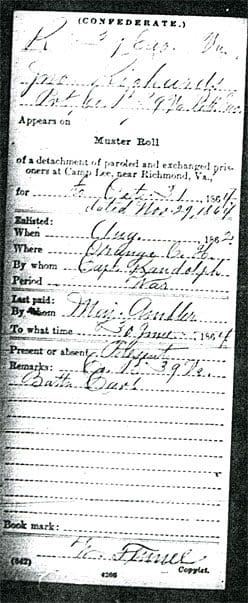 (CONFEDERATE.)
R Cav. Va.
Jno Richards
Pvt Co.
Appears on
Muster Roll
of a detachment of paroled and exchanged pris-
oners at Camp Lee, near Richmond, Va.,
for to Oct 31, 1864
dated Nov 29, 1864
Enlisted:
When Aug , 1862
Where Orange C. H.
By whom Capt Randolph
Period War
Last paid:
By whom Maj. Ambler
To what time 30 June, 1864
Present or absent Present
Remarks: Co. 39 Va.
Batt. Cavl
Book mark:
(642)
4266
Copyist.